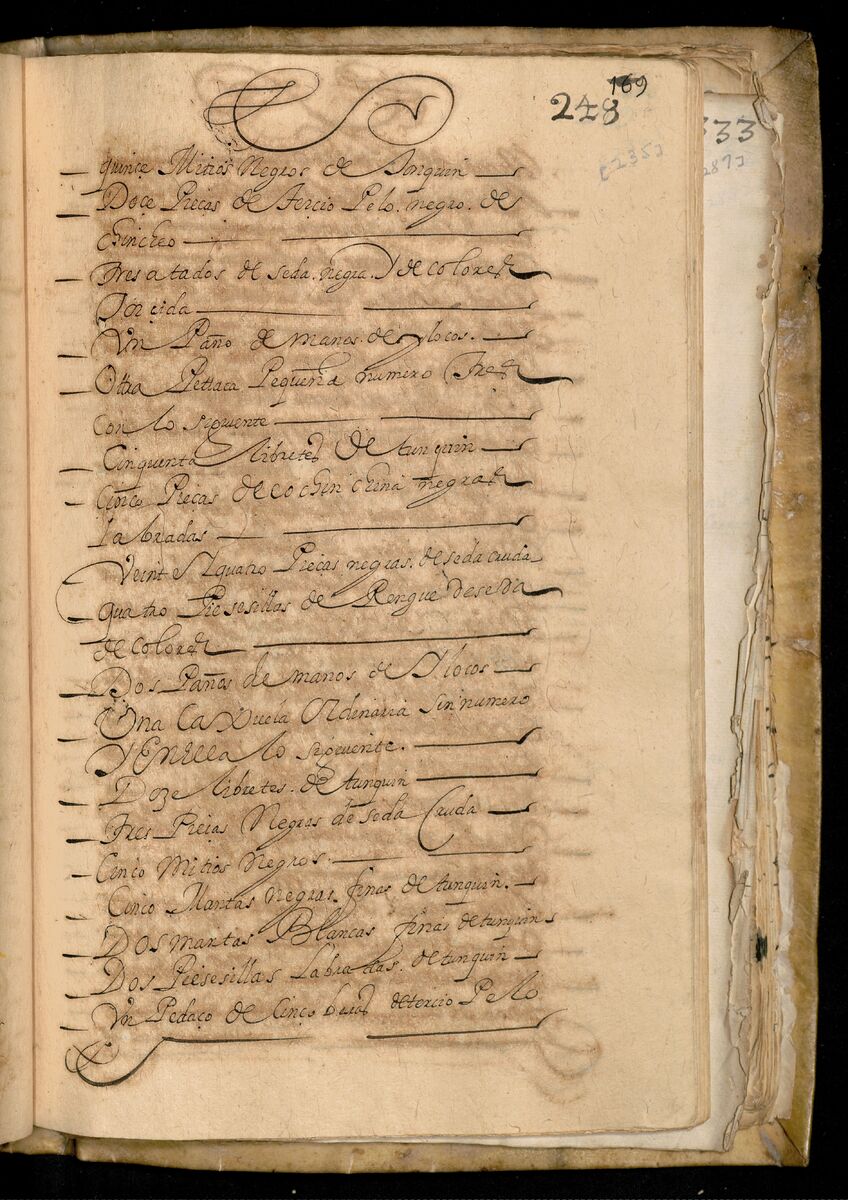 169
248
[235]
333
287]
quinçe Mitios Negros de Tonquin
Doçe Pieças de terçio Pelo. negro. de
chincheo
Tres atados de seda. negra. Y de colores
Torçida
Vn Paño de manos. de Ylocos.
Ottra Pettaca Pequeña numero Tres
Con lo siguiente
Cinquenta libretes de tunquin
Cinco Pieças de cochinchina negras
labradas
Veinte Y quatro Pieças negras. de seda cruda
quatro Piesesillas de Rengue de seda
de colores
Dos Paños de manos de Ylocos
Una Caxuela Ordinaria sin numero
Y en ella lo siguiente.
Doze libretes. de tunquin
Tres Pieças Negras de seda Cruda
Cinco Mitios Negros.
Cinco Mantas negras finas de tunquin.
Dos mantas Blancas finas de tunquin
Dos Piesesillas Labradas. de tunquin
Vn Pedaço de Cinco de terçio Pelo